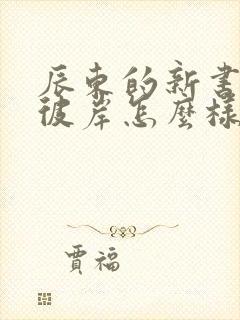 辰東的新書
彼岸怎麼樣
賈福